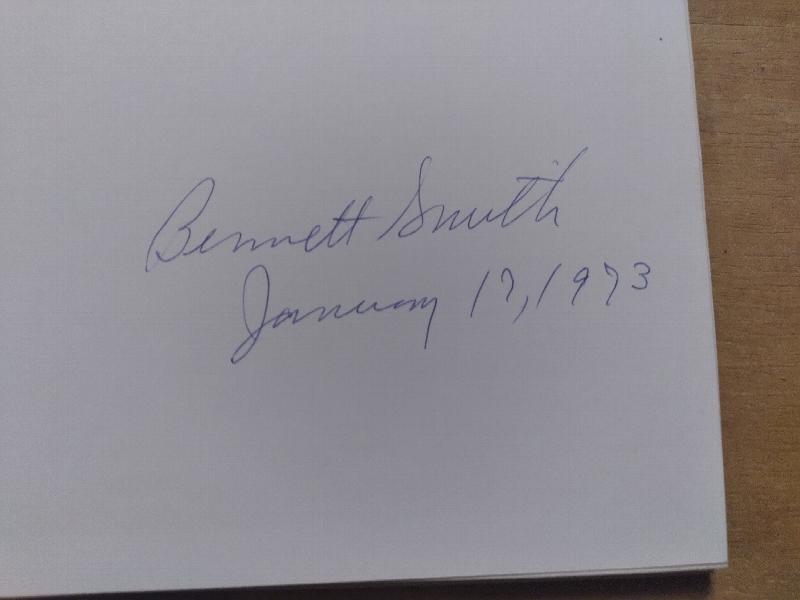 Bennett Smith
January 17, 1973